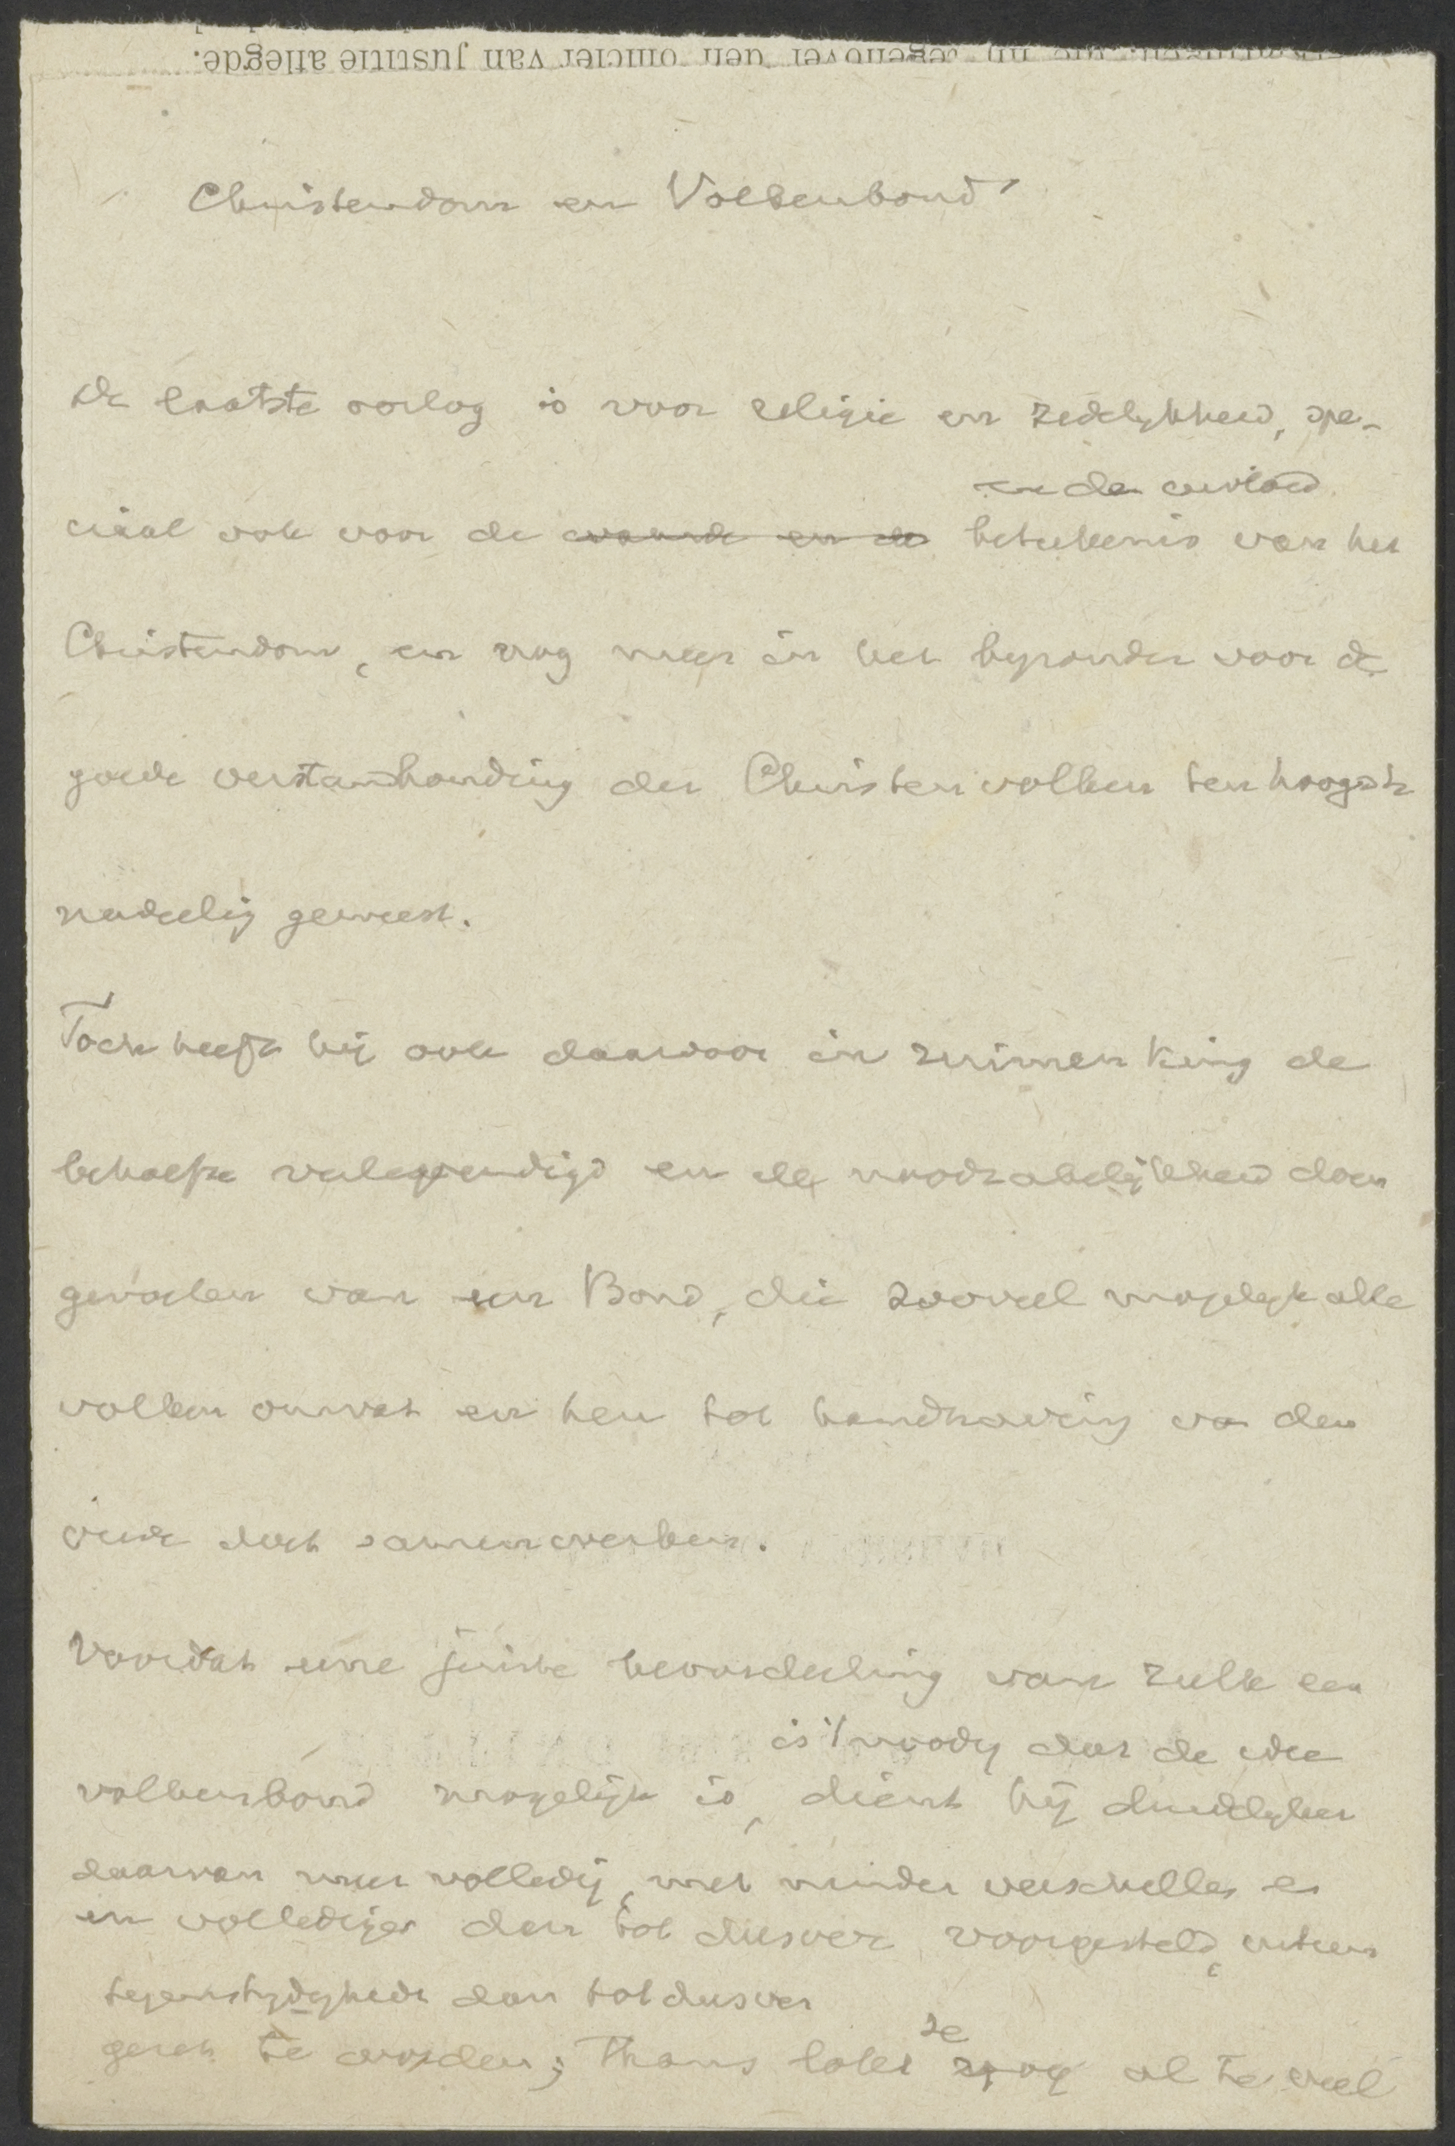 Christendom en Volkenbond
De laatste oorlog is voor religie en zedelykheid, spe-
en de invloed
ciaal ook voor de waarde en de beteekenis van het
Christendom, en nog meer in het byzonder voor de
goede verstandhouding der Christenvolken ten hoogste
nadeelig geweest.
Toch heeft hij ook daarvoor in zuimenking de
behoefte verlevendigd en de noodzakelijkheid doen
gevoelen van een Bond, die zooveel mogelyk alle
volken omvat en hen tot handhaving van den
vrede doet samenwerken.
Voordat eene juiste beoordeeling van zulk een
is 't noodig dat de idee
volkenbond mogelijk is, dient hij duidelyker
daarvan meer volledig, met minder verschilles en
en vollediger dan tot dusver voorgesteld,
tegenstrydigheden dan tot dusver
gezet te worden; Thans lokt ze nog al te veel